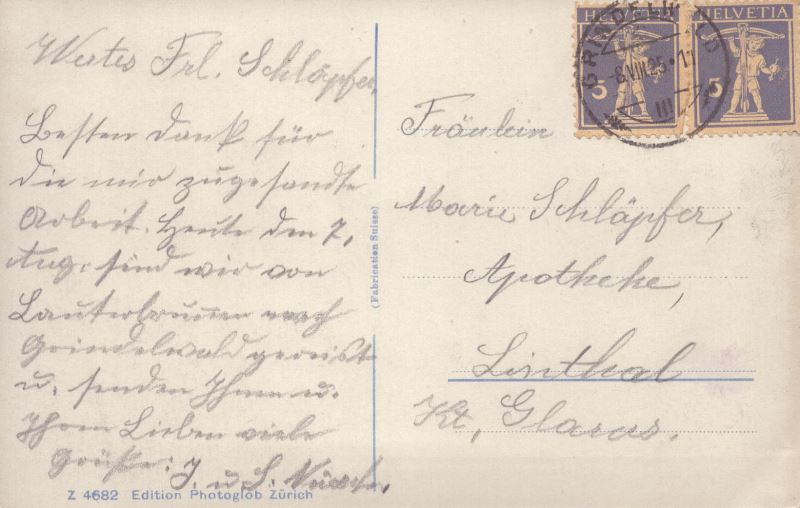 Wertes Frl. Schläpfer,
Besten Dank für
die mir zugesandte
Arbeit. Heute den 7.
Aug. sind wir von
Lauterbrunnen nach
Grindelwald gereist
u. senden Ihnen u.
Ihren Lieben viele
Grüsse: J. u. S.
Z 4682 Edition Photoglob Zürich
(Fabrication Suisse)
HELVETIA
5
HELVETIA
5
GRINDELWALD
-8.VIII.25.11
III
Fräulein
Marie Schläpfer,
Apotheke,
Linthal
Kt. Glarus.